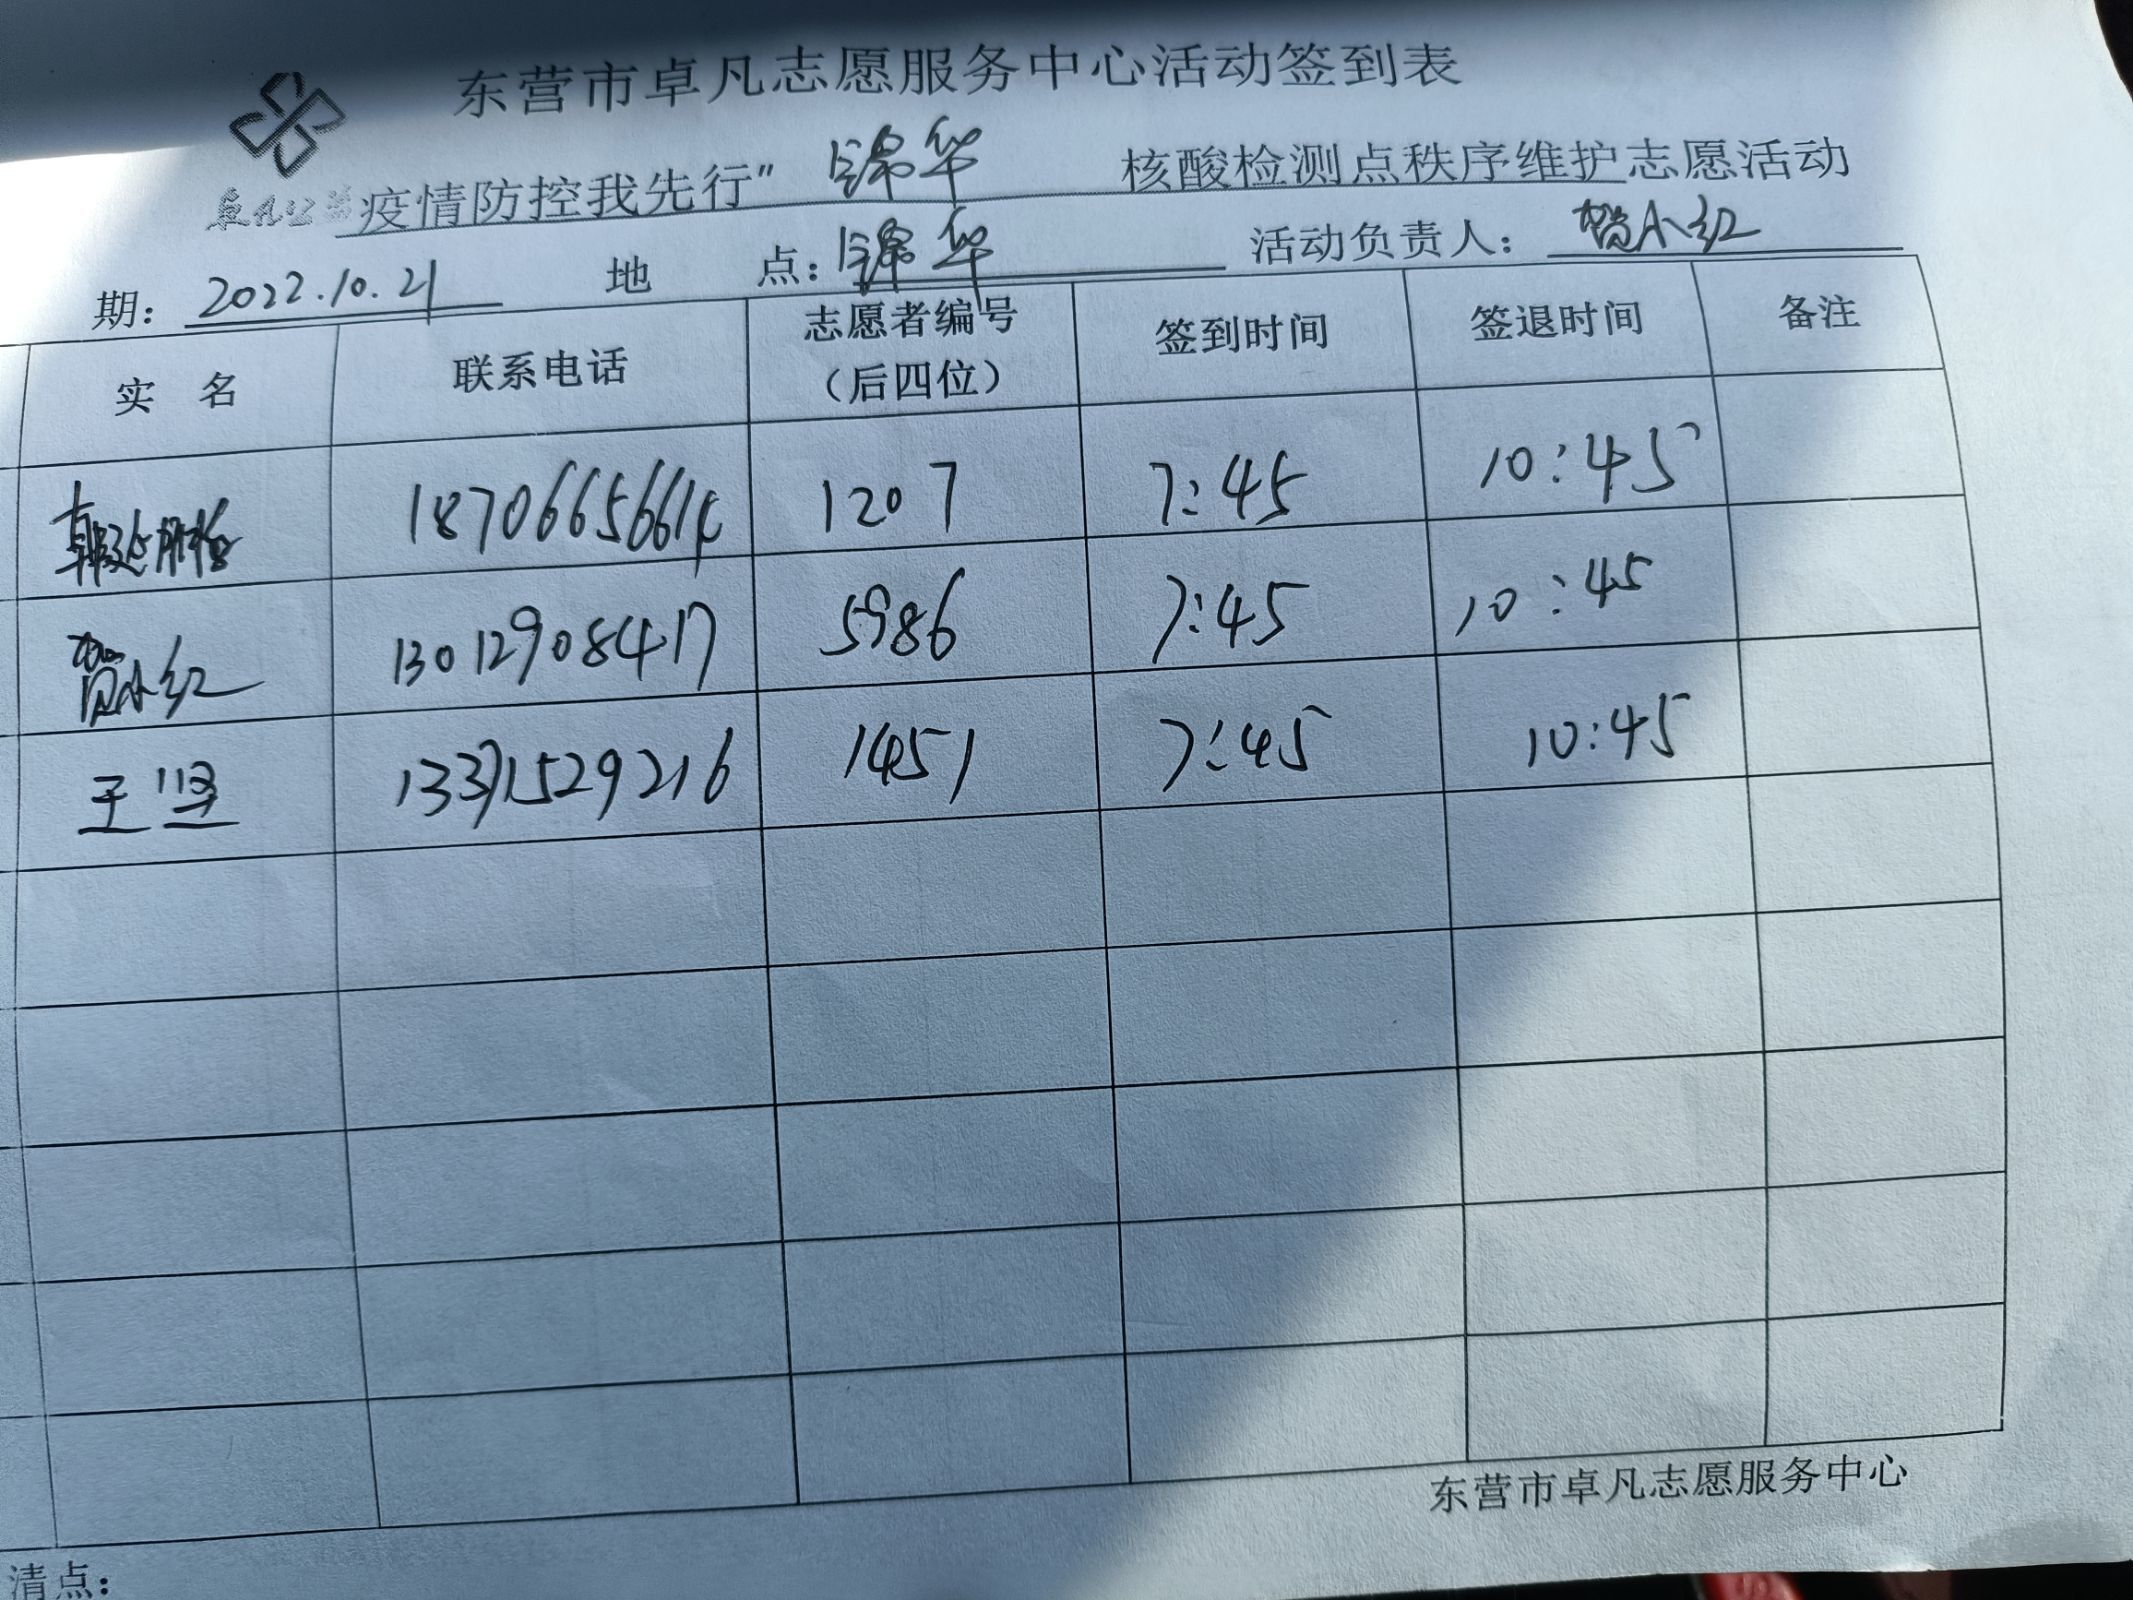 东营市卓凡志愿服务中心活动签到表
卓凡公益
疫情防控我先行” 锦华 核酸检测点秩序维护志愿活动
期: 2022.10.21 地 点: 锦华 活动负责人: 贺小红
实 名 联系电话 志愿者编号（后四位） 签到时间 签退时间 备注
18706656614 1207 7:45 10:45
贺小红 13012908417 5986 7:45 10:45
王坚 13371529216 1451 7:45 10:45
东营市卓凡志愿服务中心
清点: